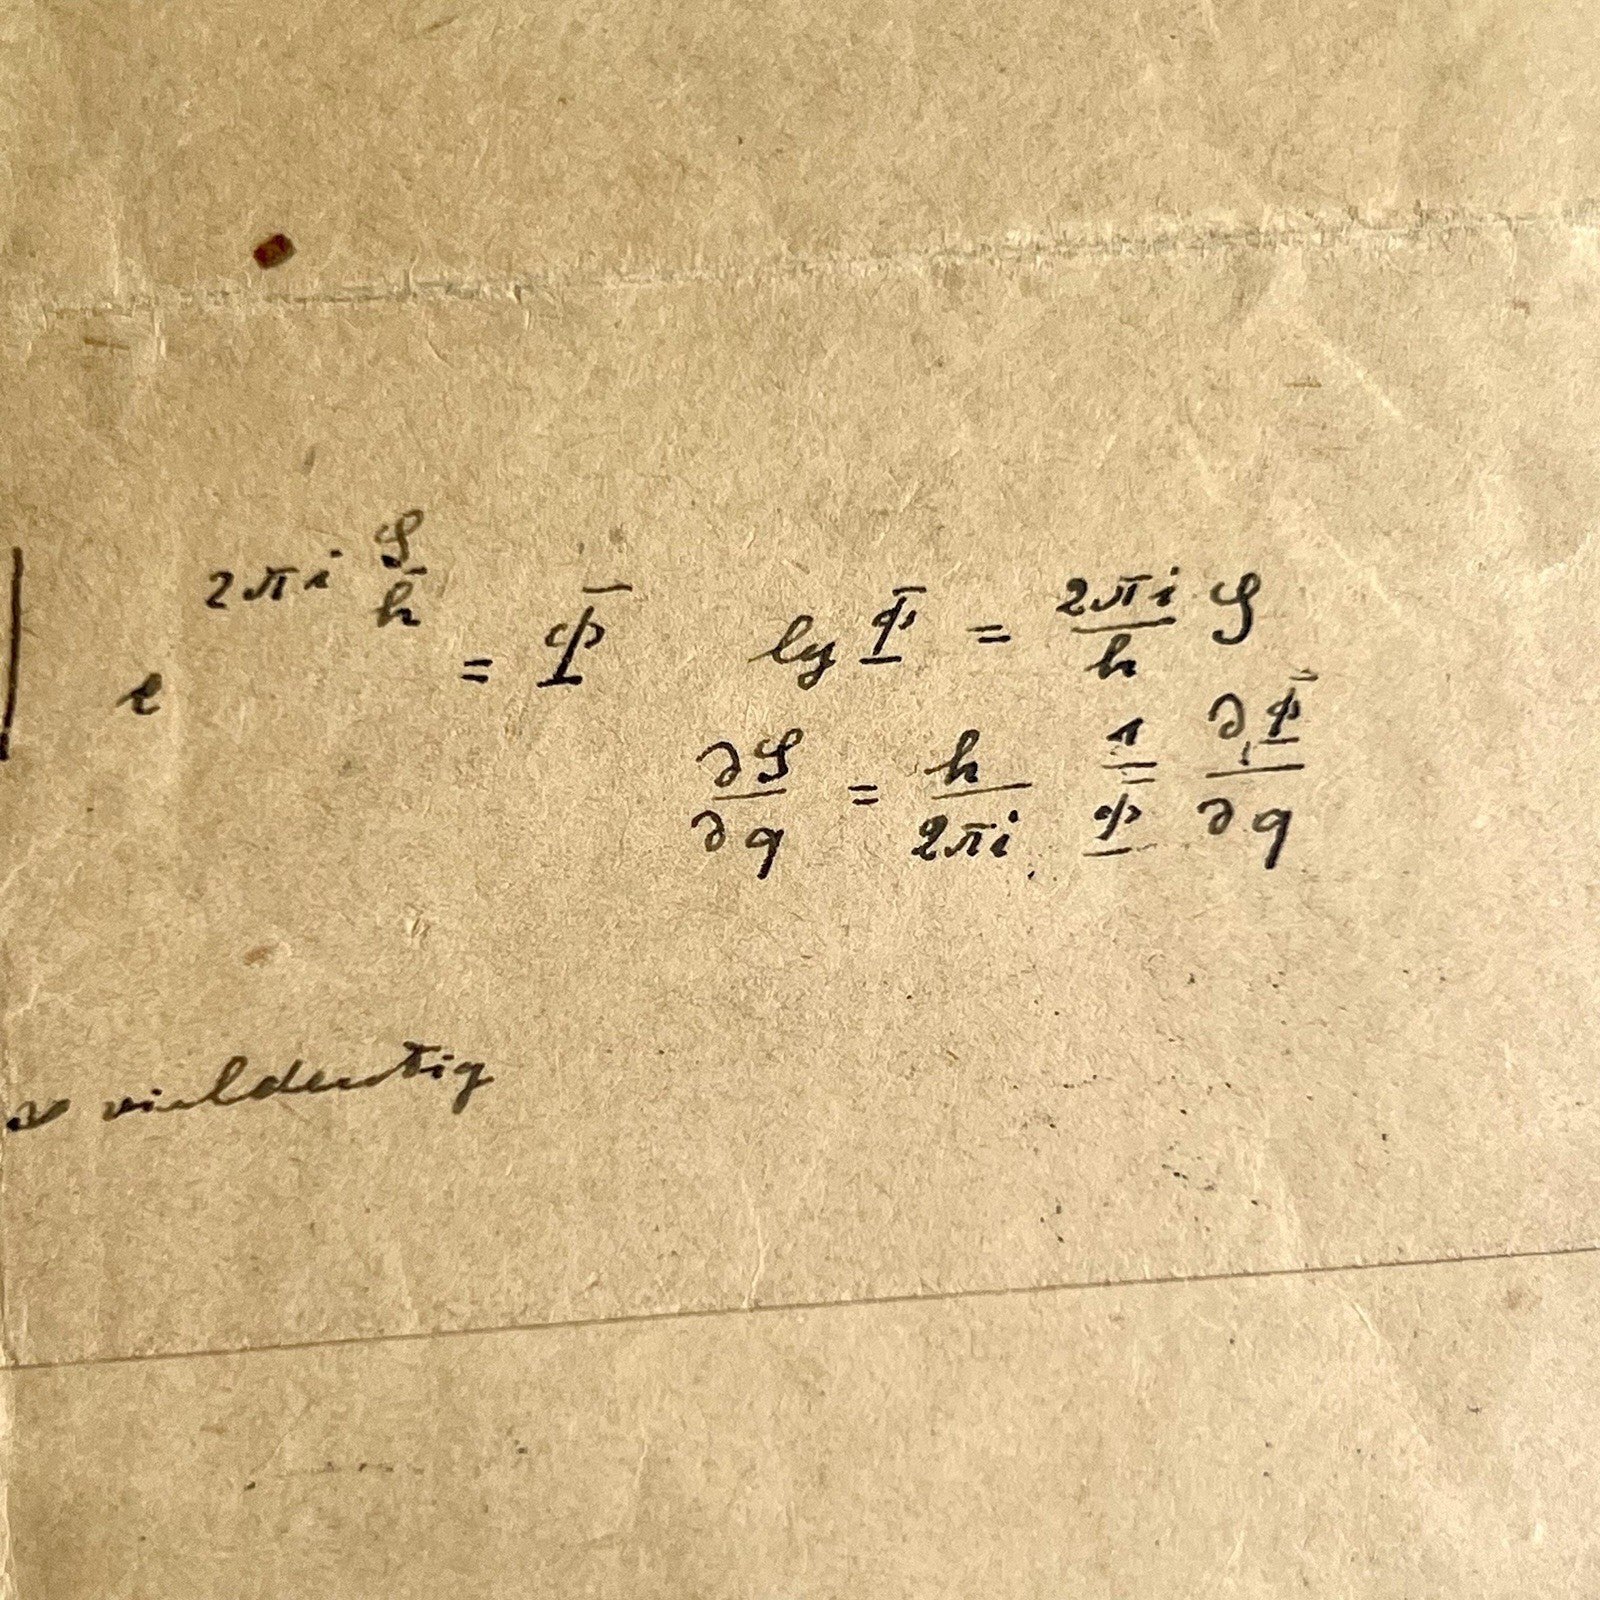 e^{2πi S/h} = Φ    lg Φ = 2πi/h S
∂S/∂q = h/2πi 1/Φ ∂Φ/∂q
vieldeutig